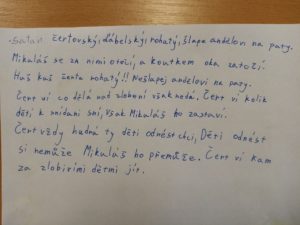 -Satan čertovský, ďábelský, rohatý, šlape andělovi na paty.
Mikuláš se za nimi otočí, a koutkem oka zatočí.
Huš kuš čerta rohatý!! Nešlapej andělovi na paty.
Čert ví co dělá nad zlobení však nedá. Čert ví kolik
dětí k snídani sní, však Mikuláš ho zastaví.
Čert vždy hodná ty děti odnést chci, Děti odnést
si nemůže Mikuláš ho přemůže. Čert ví kam
za zlobivími dětmi jít.